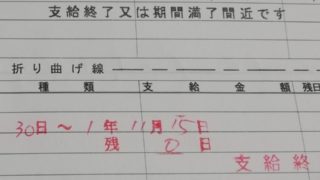 支給終了又は期間満了間近です
折り曲げ線
種類 支給金額 残日
30日～1年11月15日
残 0日
支給終